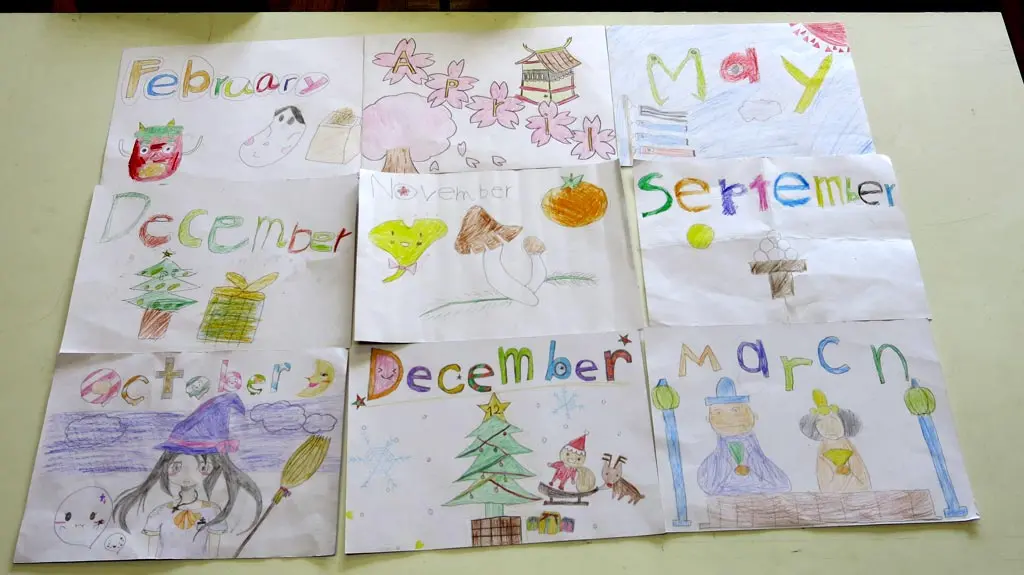 February
April
May
December
November
September
October
December
12
Marcn